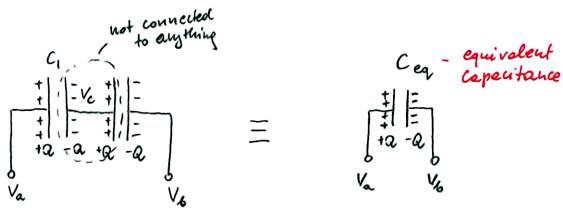 not connected
to anything
C₁
V_c
+Q -Q +Q -Q
V_a V_b
≡
C_eq - equivalent
capacitance
+Q -Q
V_a V_b